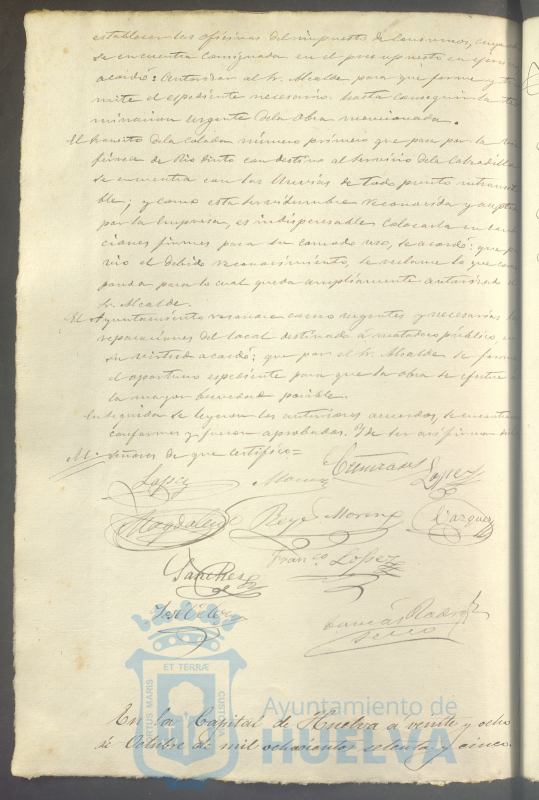 establecer las oficinas del impuesto de Consumos, cuya
se encuentra consignada en el presupuesto en ejercicio
acordó: Autorizar al Sr. Alcalde para que forme y tra
mite el espediente necesario hasta conseguir la ter
minacion urgente de la obra mencionada.
El tránsito de la Calzada número primero que pasa por la via
férrea de Rio tinto con destino al servicio de la Calzadilla
se encuentra con las lluvias de todo punto intransita
ble; y como esta servidumbre reconocida y aceptada
por la Empresa, es indispensable colocarla en condi
ciones firmes para su comodo uso, se acordó: que pre
vio el debido reconocimiento, se reclame lo que corres
ponda para lo cual queda ampliamente autorizado el
Sr. Alcalde.
El Ayuntamiento urgentes y necesarias las
reparaciones del local destinado á matadero público, en
su virtud acordó; que por el Sr. Alcalde se forme
el oportuno espediente para que la obra se efectue á
la mayor brevedad posible.
En seguida se leyeron los anteriores acuerdos, se encuentran
conformes y fueron aprobados. Y de ser asi firman dichos
Señores de que certifico=
Lopez
Lopez
Magdalena
Reyes Moreno
Vazquez
Sanchez
Franco. Lopez
En la Capital de Huelva á veinte y ocho
de Octubre de mil ochocientos setenta y cinco.
ET TERRÆ
PORTUS MARIS
CUSTODIA
Ayuntamiento de
HUELVA